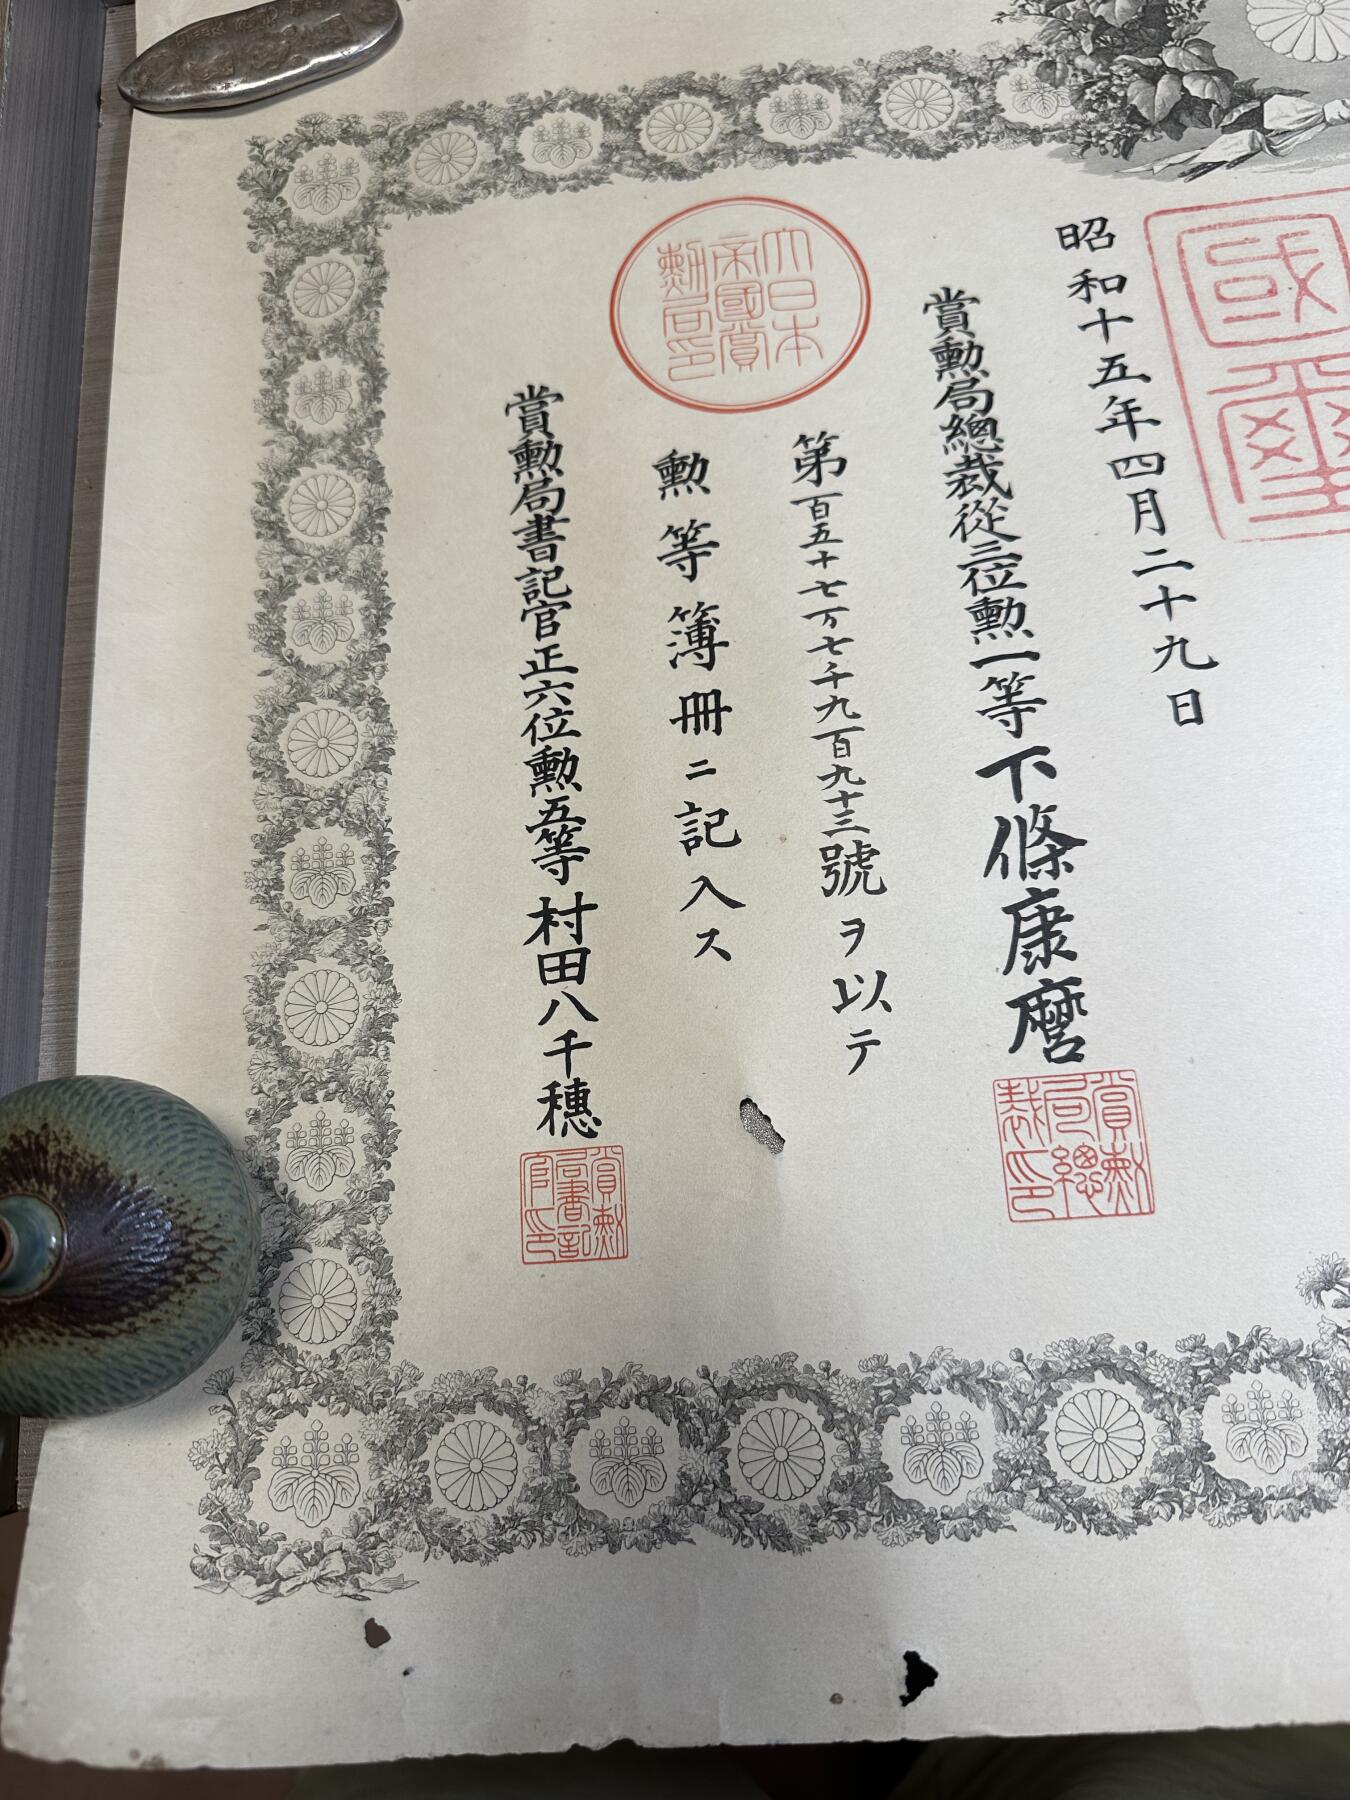 國璽
昭和十五年四月二十九日
賞勲局總裁從三位勲一等下條康麿
賞勲局總裁印
大日本帝國賞勲局印
第百五十七万七千九百九十三號ヲ以テ
勲等簿冊ニ記入ス
賞勲局書記官正六位勲五等村田八千穗
賞勲局書記官印